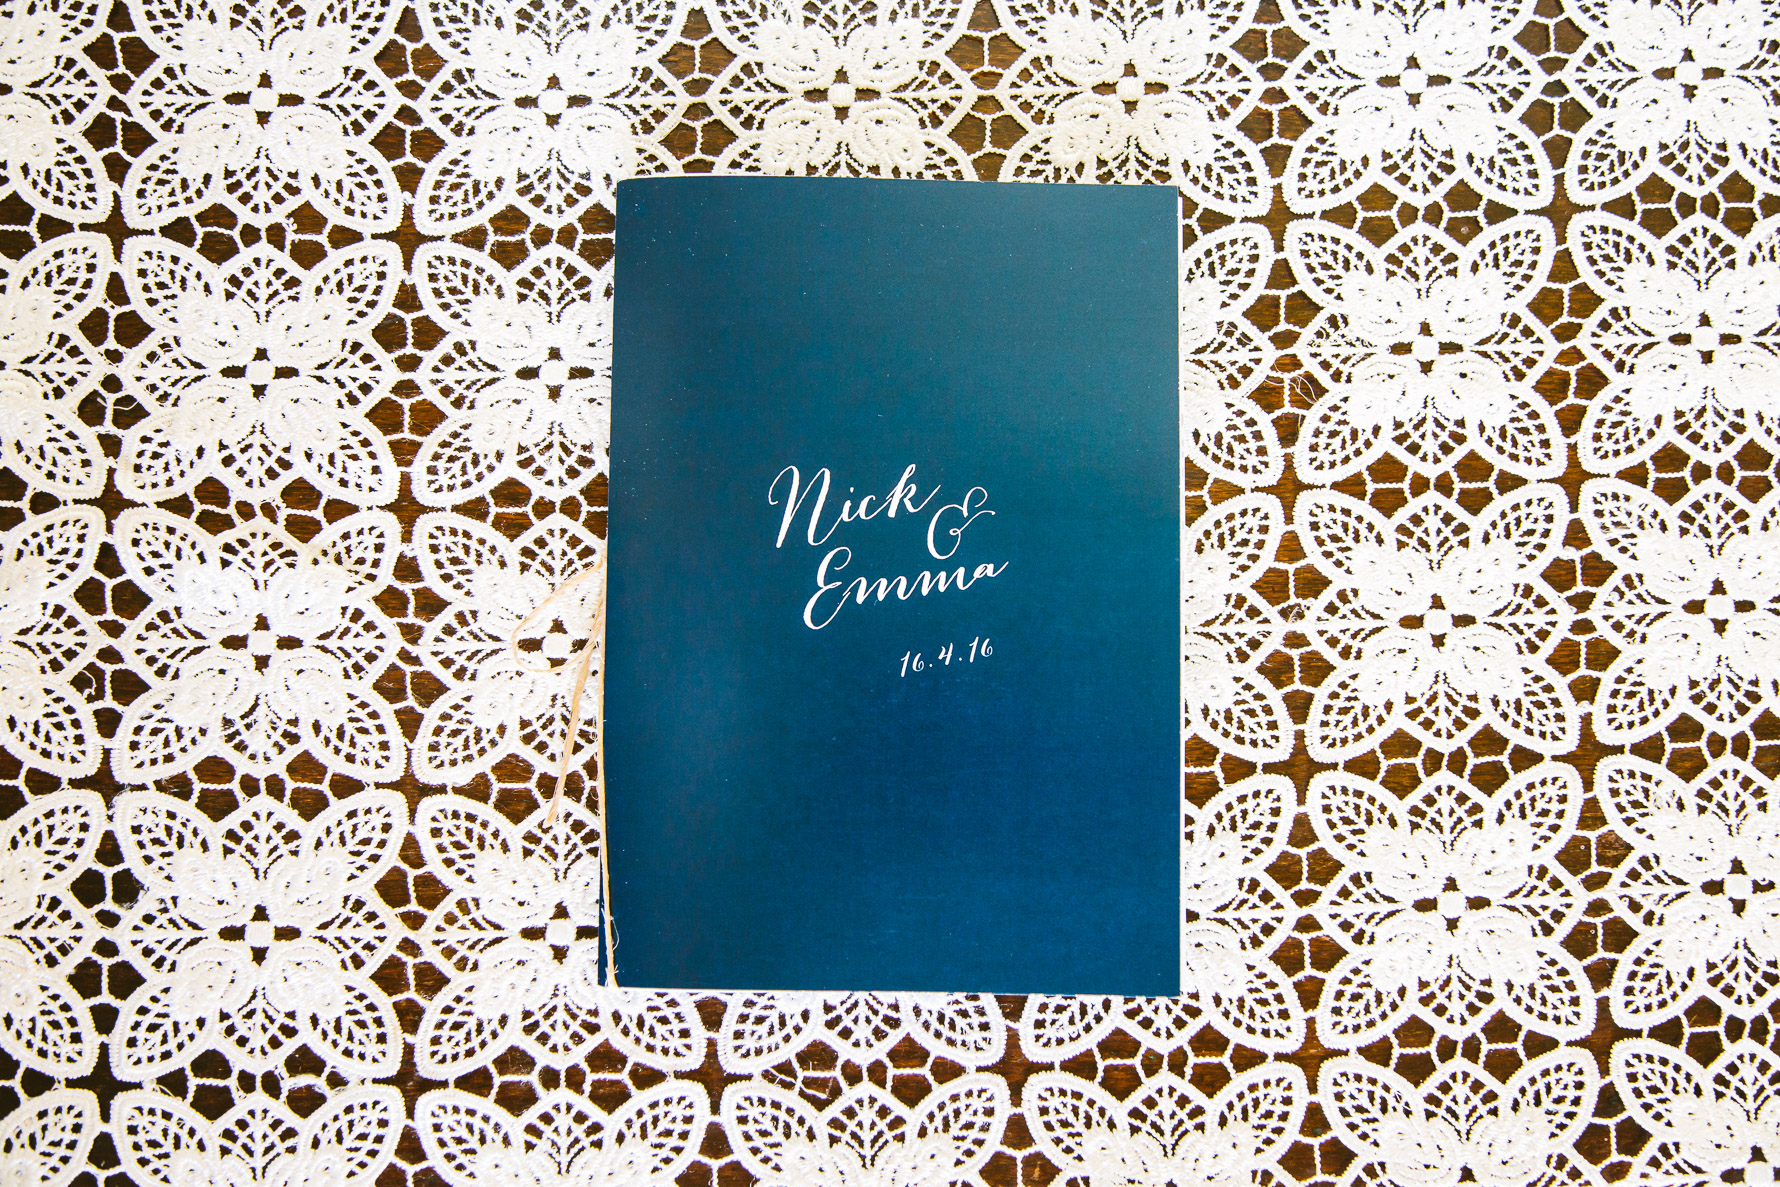 Nick &
Emma
16.4.16